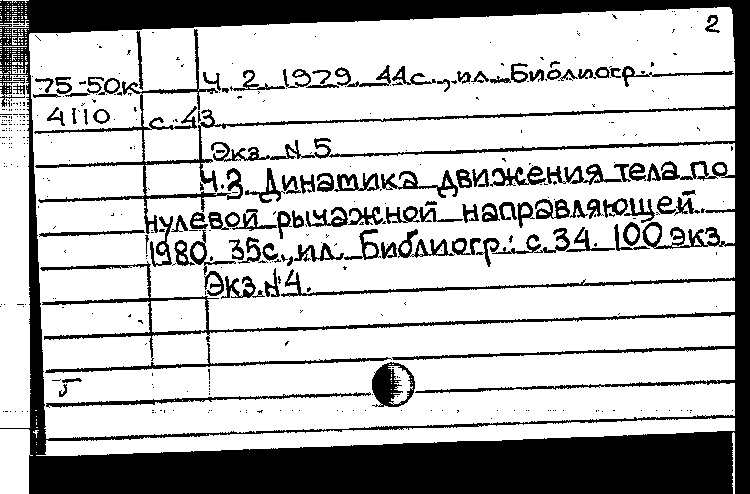 2
75-50к Ч. 2. 1979. 44с., ил. Библиогр.:
4110 с. 43.
Экз. N 5
Ч.3. Динамика движения тела по
нулевой рычажной направляющей.
1980. 35с., ил. Библиогр.: с. 34. 100 экз.
Экз. N 4.